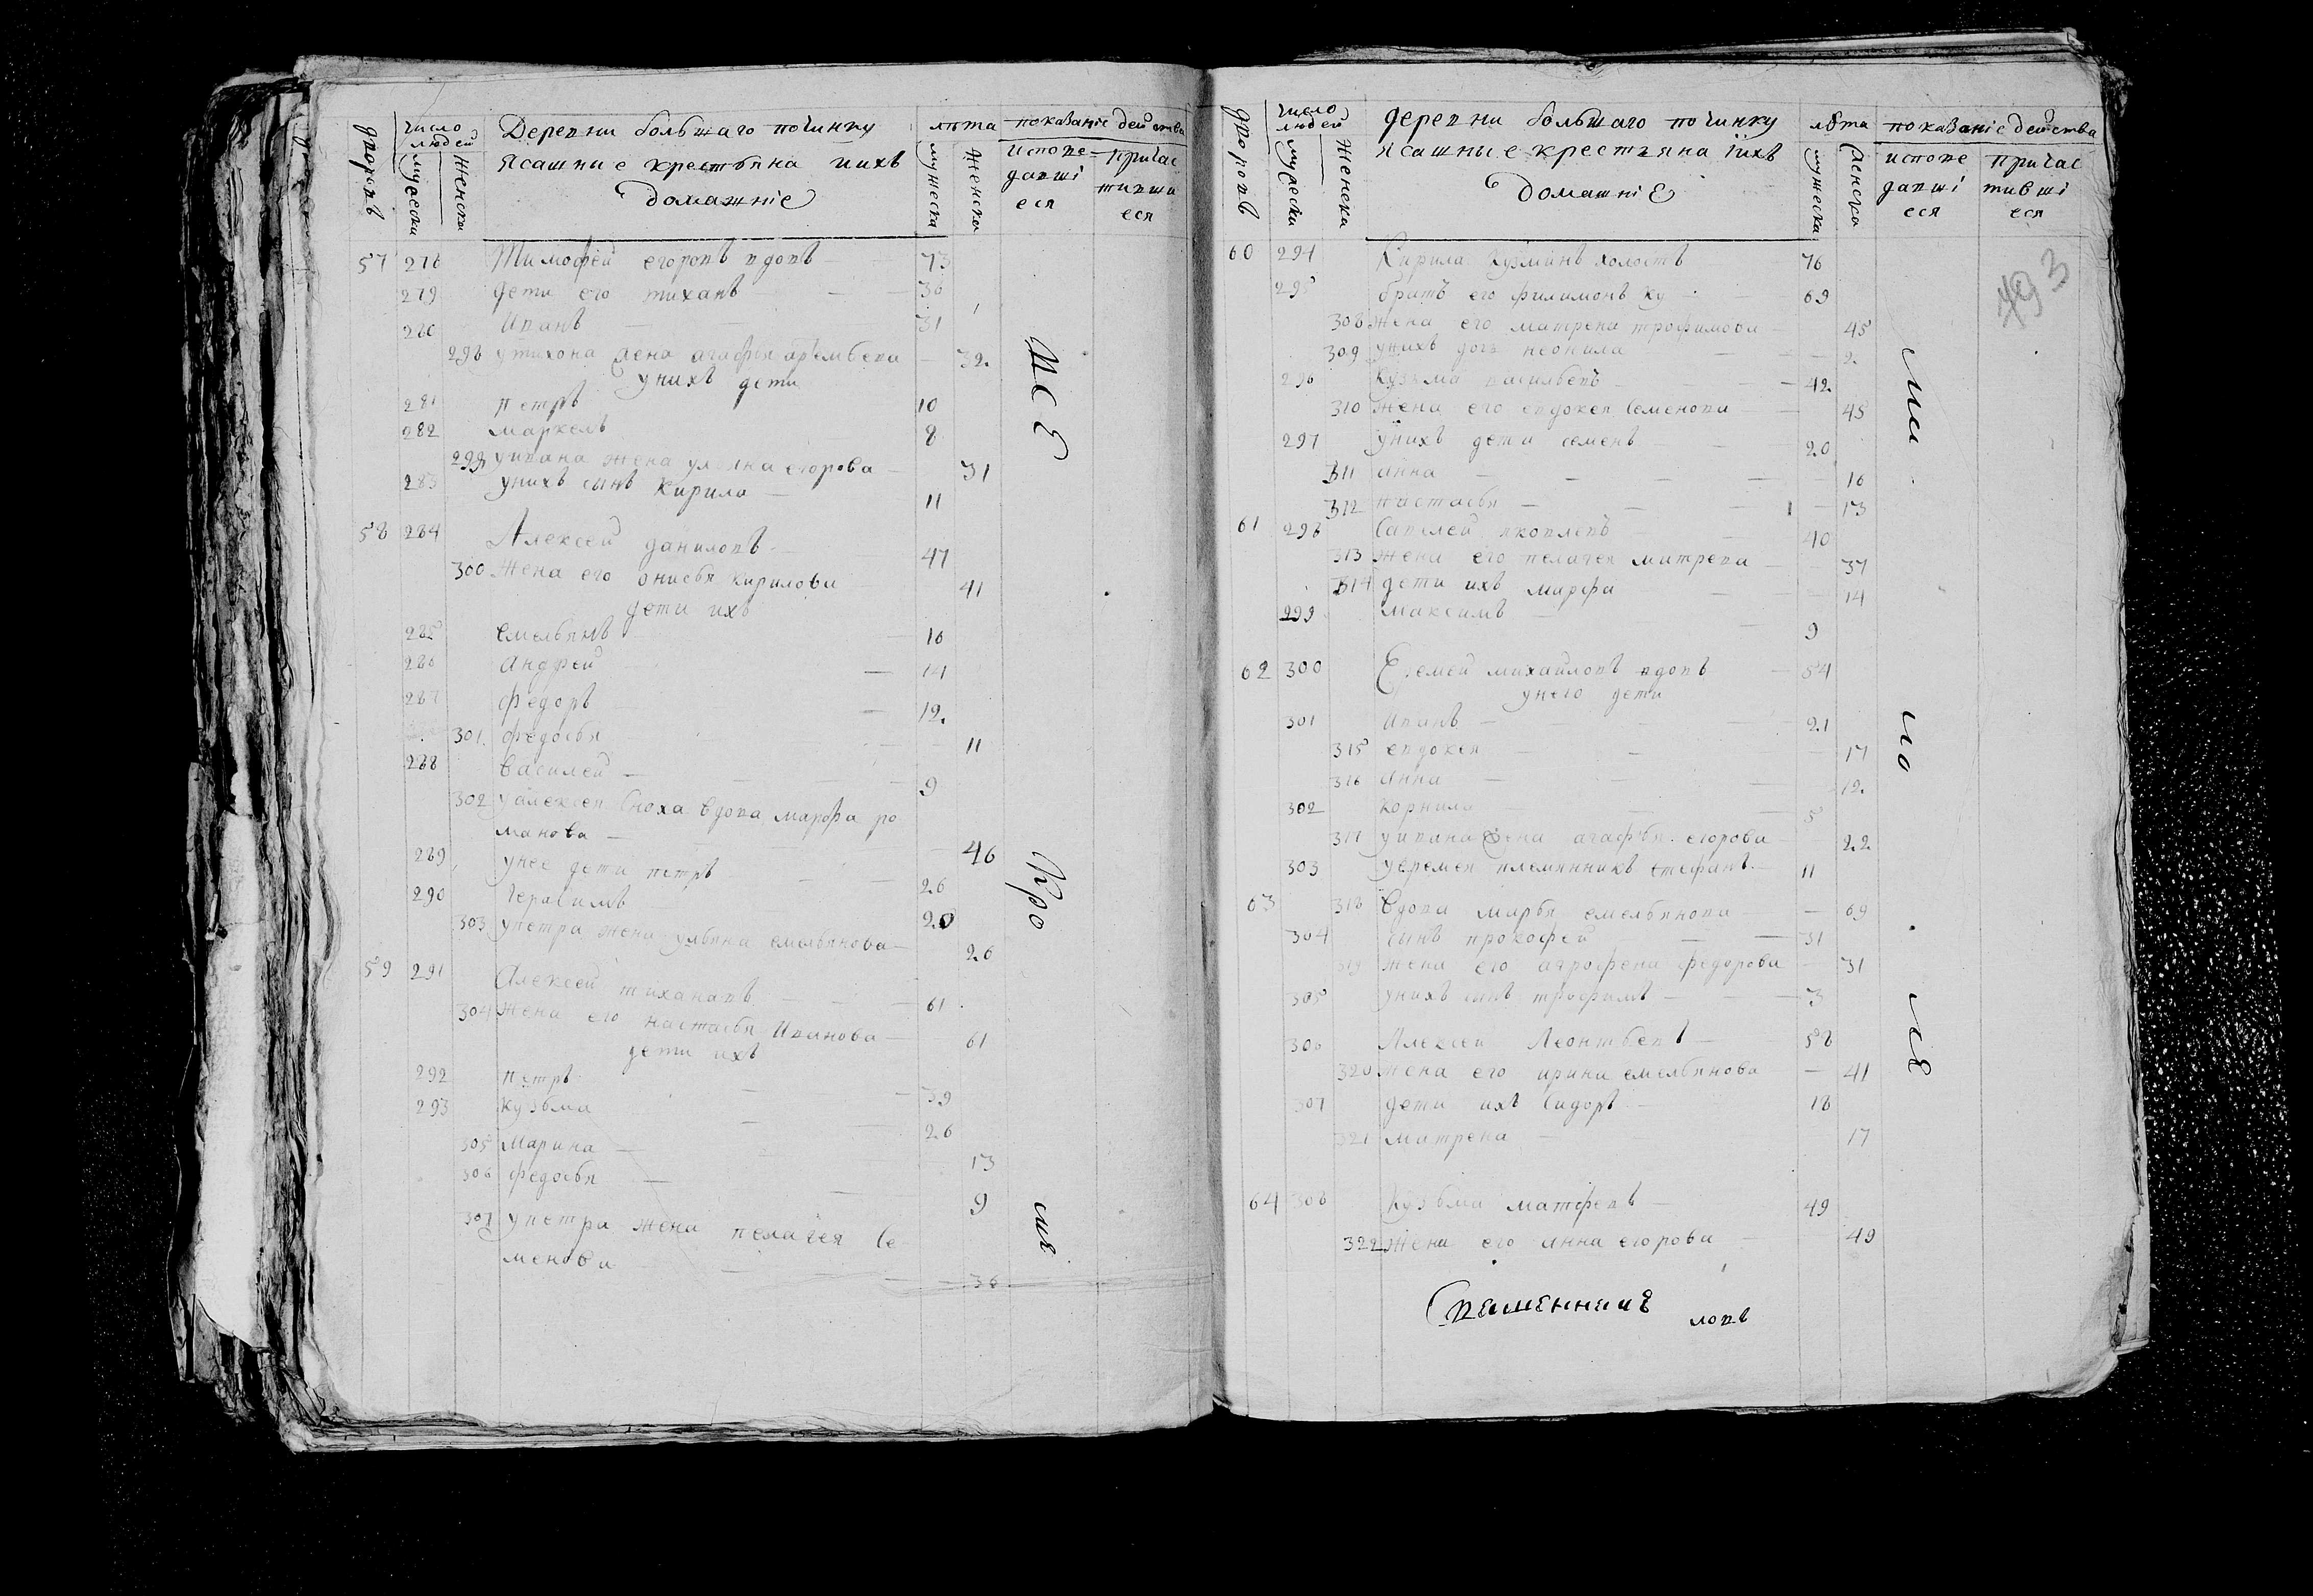 дворовъ
число
людей
мужеска
женска
Деревни большаго починку
ясашные крестьяна иихъ
домашніе
лѣта
мужеска
женска
показаніе действа
испове
давші
еся
причас
тивши
еся
57 278 Тимофей егоровъ вдовъ 73
279 дети его тиханъ 36
280 Иванъ 31
298 утихона жена агафья артемьева 32
унихъ дети
281 петръ 10
282 маркелъ 8
299 уивана жена ульяна егорова 31
283 унихъ сынъ кирило 11
58 284 Алексей даниловъ 47
300 жена его онисья кирилова 41
дети ихъ
285 емельянъ 16
286 андрей 14
287 федоръ 12
301 федосья 11
288 василей 9
302 уалексея сноха вдова марфа ро
манова 46
289 унее дети петръ 26
290 герасимъ 20
303 упетра жена ульяна емельянова 26
59 291 Алексей тихановъ 61
304 жена его настасья Иванова 61
дети ихъ
292 петръ 39
293 кузьма 26
305 марина 13
306 федосья 9
307 упетра жена пелагея се
менова 36
исе
кро
мя
дворовъ
число
людей
мужеска
женска
деревни большаго починку
ясашные крестьяна иихъ
домашніе
лѣта
мужеска
женска
показаніе действа
испове
давші
еся
причас
тивші
еся
493
60 294 Кирила кузминъ холостъ 76
295 братъ его филимонъ ку 69
308 жена его матрена трофимова 45
309 унихъ дочь неонила 2
296 кузьма васильевъ 42
310 жена его евдокея семенова 45
297 унихъ дети семенъ 20
311 анна 16
312 настасья 13
61 298 Савелей яковлевъ 40
313 жена его пелагея матвева 37
314 дети ихъ марфа 14
299 максимъ 9
62 300 Еремей михайловъ вдовъ 54
унего дети
301 иванъ 21
315 евдокея 17
316 анна 12
302 корнило 5
317 уивана жена агафья егорова 22
303 уеремея племянникъ стефанъ 11
63 318 вдова марья емельянова 69
304 сынъ прокофей 31
319 жена его агрофена федорова 31
305 унихъ сынъ трофимъ 3
306 Алексей Леонтьевъ 58
320 жена его ирина емельянова 41
307 дети ихъ сидоръ 18
321 матрена 17
64 308 Кузьма матфевъ 49
322 жена его анна егорова 49
ми
ло
ля
Священникъ ловъ